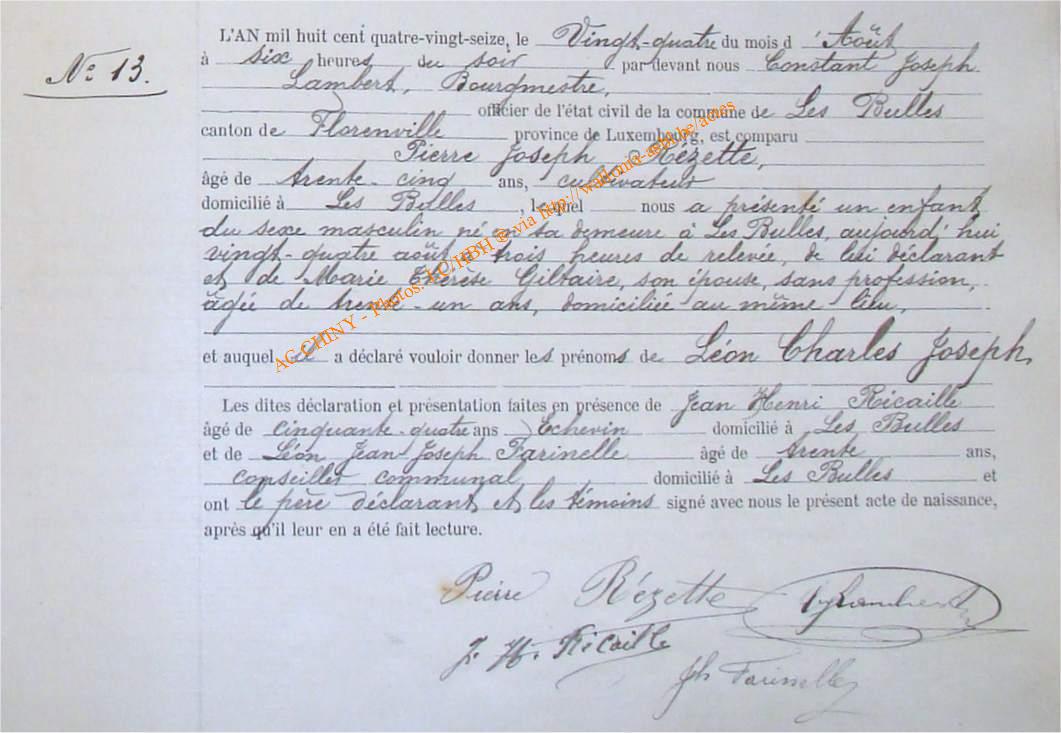 L'AN mil huit cent quatre-vingt-seize, le Vingt-quatre du mois d'Août
N° 13.
à six heures du soir par devant nous Constant Joseph
Lambert, Bourgmestre,
officier de l'état civil de la commune de Les Bulles
canton de Florenville province de Luxembourg, est comparu
Pierre Joseph Rézette,
âgé de trente-cinq ans, cultivateur
domicilié à Les Bulles, lequel nous a présenté un enfant
du sexe masculin né en sa demeure à Les Bulles, aujourd'hui
vingt-quatre août à trois heures de relevée, de lui déclarant
et de Marie Thérèse Giltaire, son épouse, sans profession,
âgée de trente-un ans, domiciliée au même lieu,
et auquel il a déclaré vouloir donner les prénoms de Léon Charles Joseph,
Les dites déclaration et présentation faites en présence de Jean Henri Ricaille
âgé de cinquante-quatre ans Echevin domicilié à Les Bulles
et de Léon Jean Joseph Farinelle âgé de trente ans,
conseiller communal, domicilié à Les Bulles et
ont le père déclarant et les témoins signé avec nous le présent acte de naissance,
après qu'il leur en a été fait lecture.
Pierre Rézette Lambert
J. H. Ricaille
Jh Farinelle
AG CHINY - Photos: LC/HBH ® via http://wallonia-asbl.be/actes